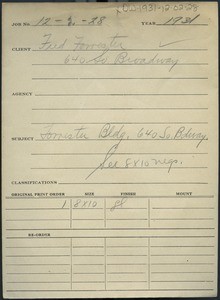 U-1931-12-02-28
JOB NO. 12-2-28 YEAR 1931
CLIENT Fred Forrester
640 So. Broadway
AGENCY
SUBJECT Forrester Bldg. 640 So. Bdway.
See 8x10 negs.
CLASSIFICATIONS
ORIGINAL PRINT ORDER SIZE FINISH MOUNT
1 8x10 gl
RE-ORDER